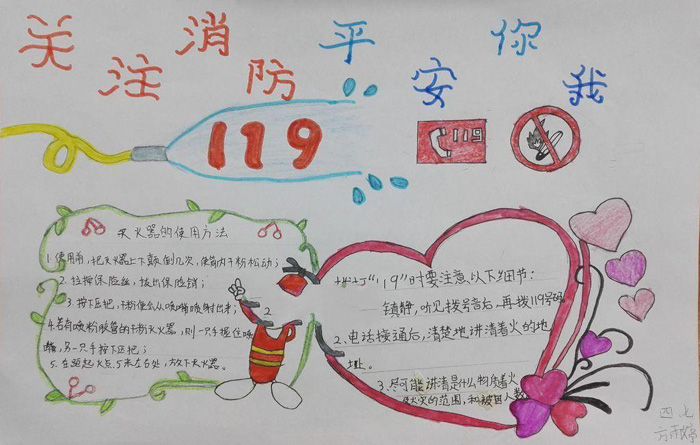 关注消防平安你我
119
119
灭火器的使用方法
1.使用前,把灭火器上下颠倒几次,使筒内干粉松动;
2.拉掉保险丝,拔出保险销;
3.按下压把,干粉便会从喷嘴喷射出来;
4.若有喷粉胶管的干粉灭火器,则一只手握住喷
嘴,另一只手按下压把;
5.在距起火点5米左右处,放下灭火器。
2
"119"时要注意以下细节:
镇静,听见拨号音后,再拨119号码
2、电话接通后,清楚地讲清着火的地
址。
3、尽可能讲清是什么物质着火
的范围,和被困人数
四